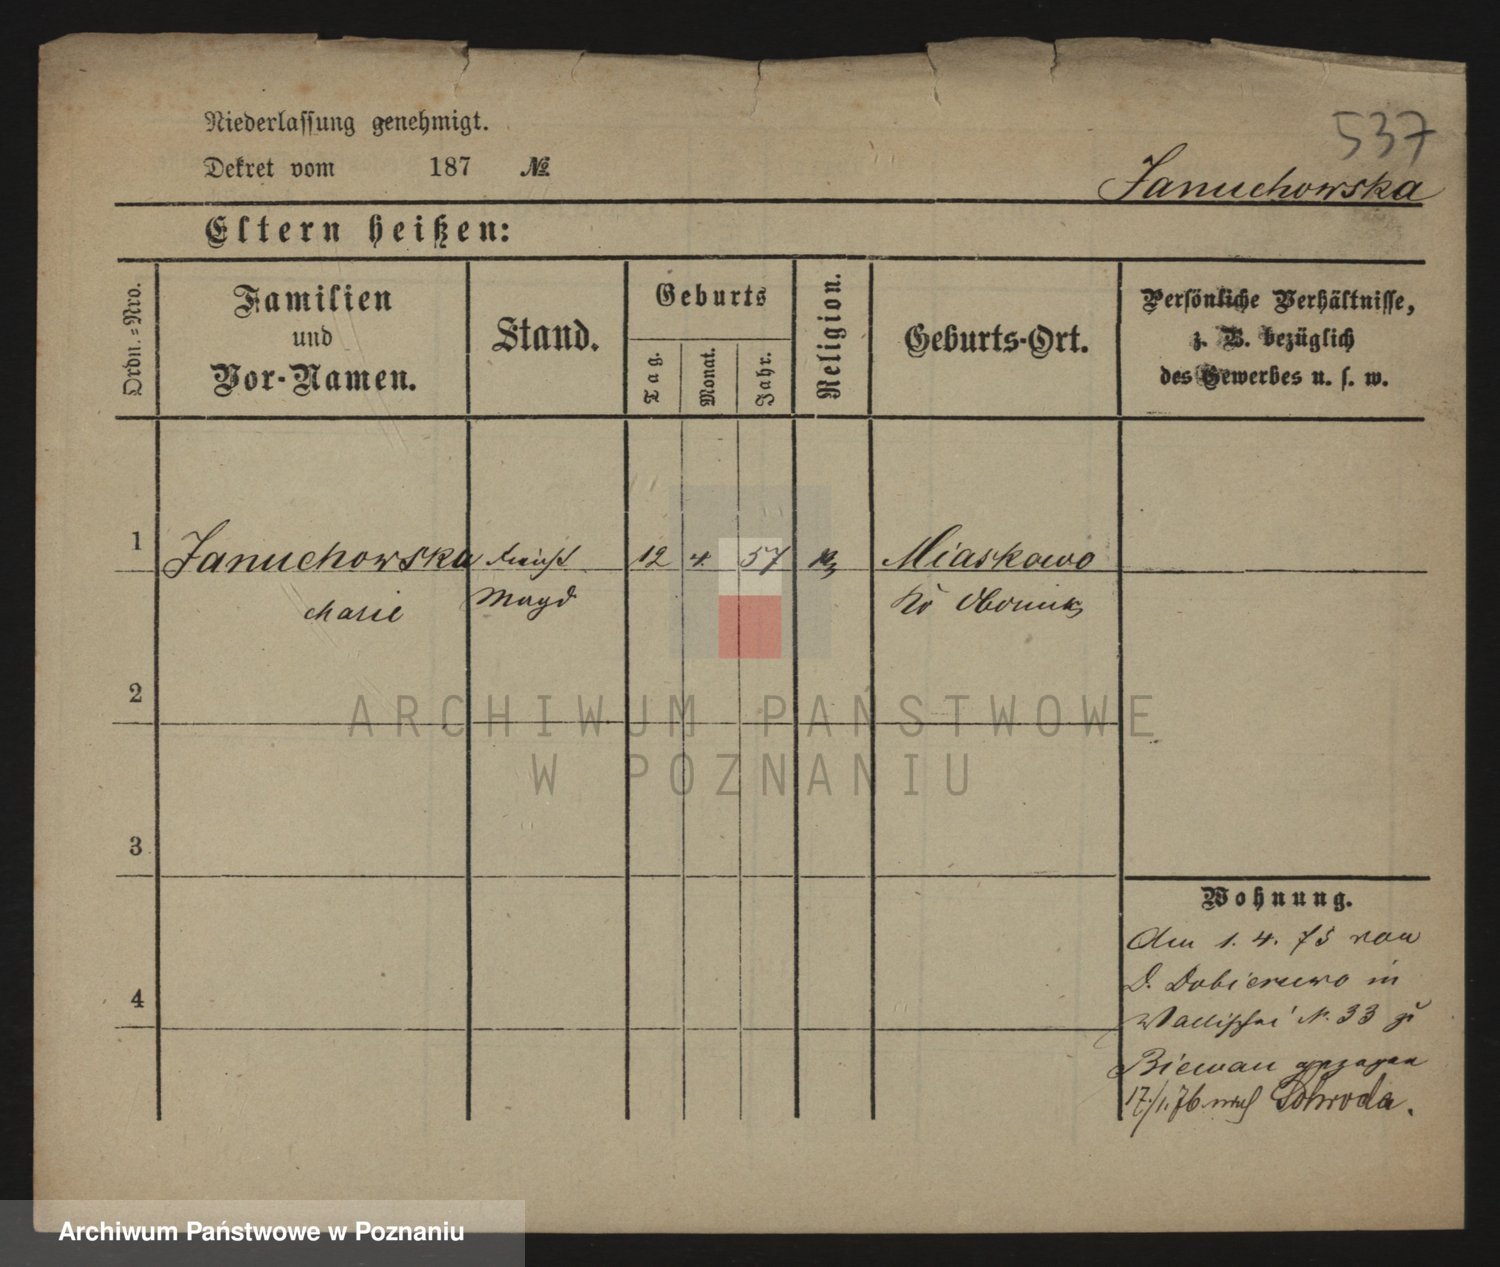 Niederlassung genehmigt.
Dekret vom 187 №
537
Januchowska
Eltern heißen:
Ordn.-Nro.
Familien
und
Vor-Namen.
Stand.
Geburts
Tag.
Monat.
Jahr.
Religion.
Geburts-Ort.
Persönliche Verhältnisse,
z. B. bezüglich
des Gewerbes u. s. w.
1 Januchowska 12 4. 57 Miaskowo
Marie Magd Obornik
2
3
4
Wohnung.
Am 1. 4. 75 von
D. Dobierzewo in
Wallischei N. 33 zu
Bieman gezogen
17./1.76 nach Schroda.
ARCHIWUM PAŃSTWOWE
W POZNANIU
Archiwum Państwowe w Poznaniu